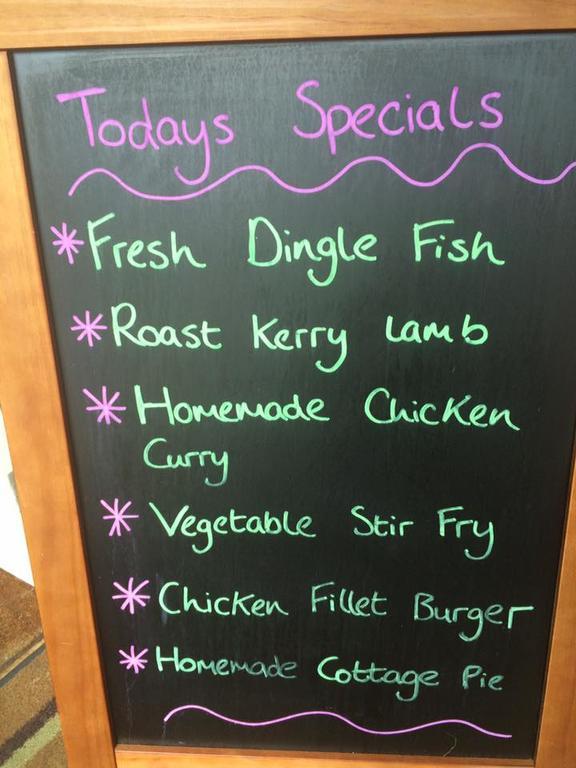 Todays Specials
* Fresh Dingle Fish
* Roast Kerry Lamb
* Homemade Chicken
Curry
* Vegetable Stir Fry
* Chicken Fillet Burger
* Homemade Cottage Pie